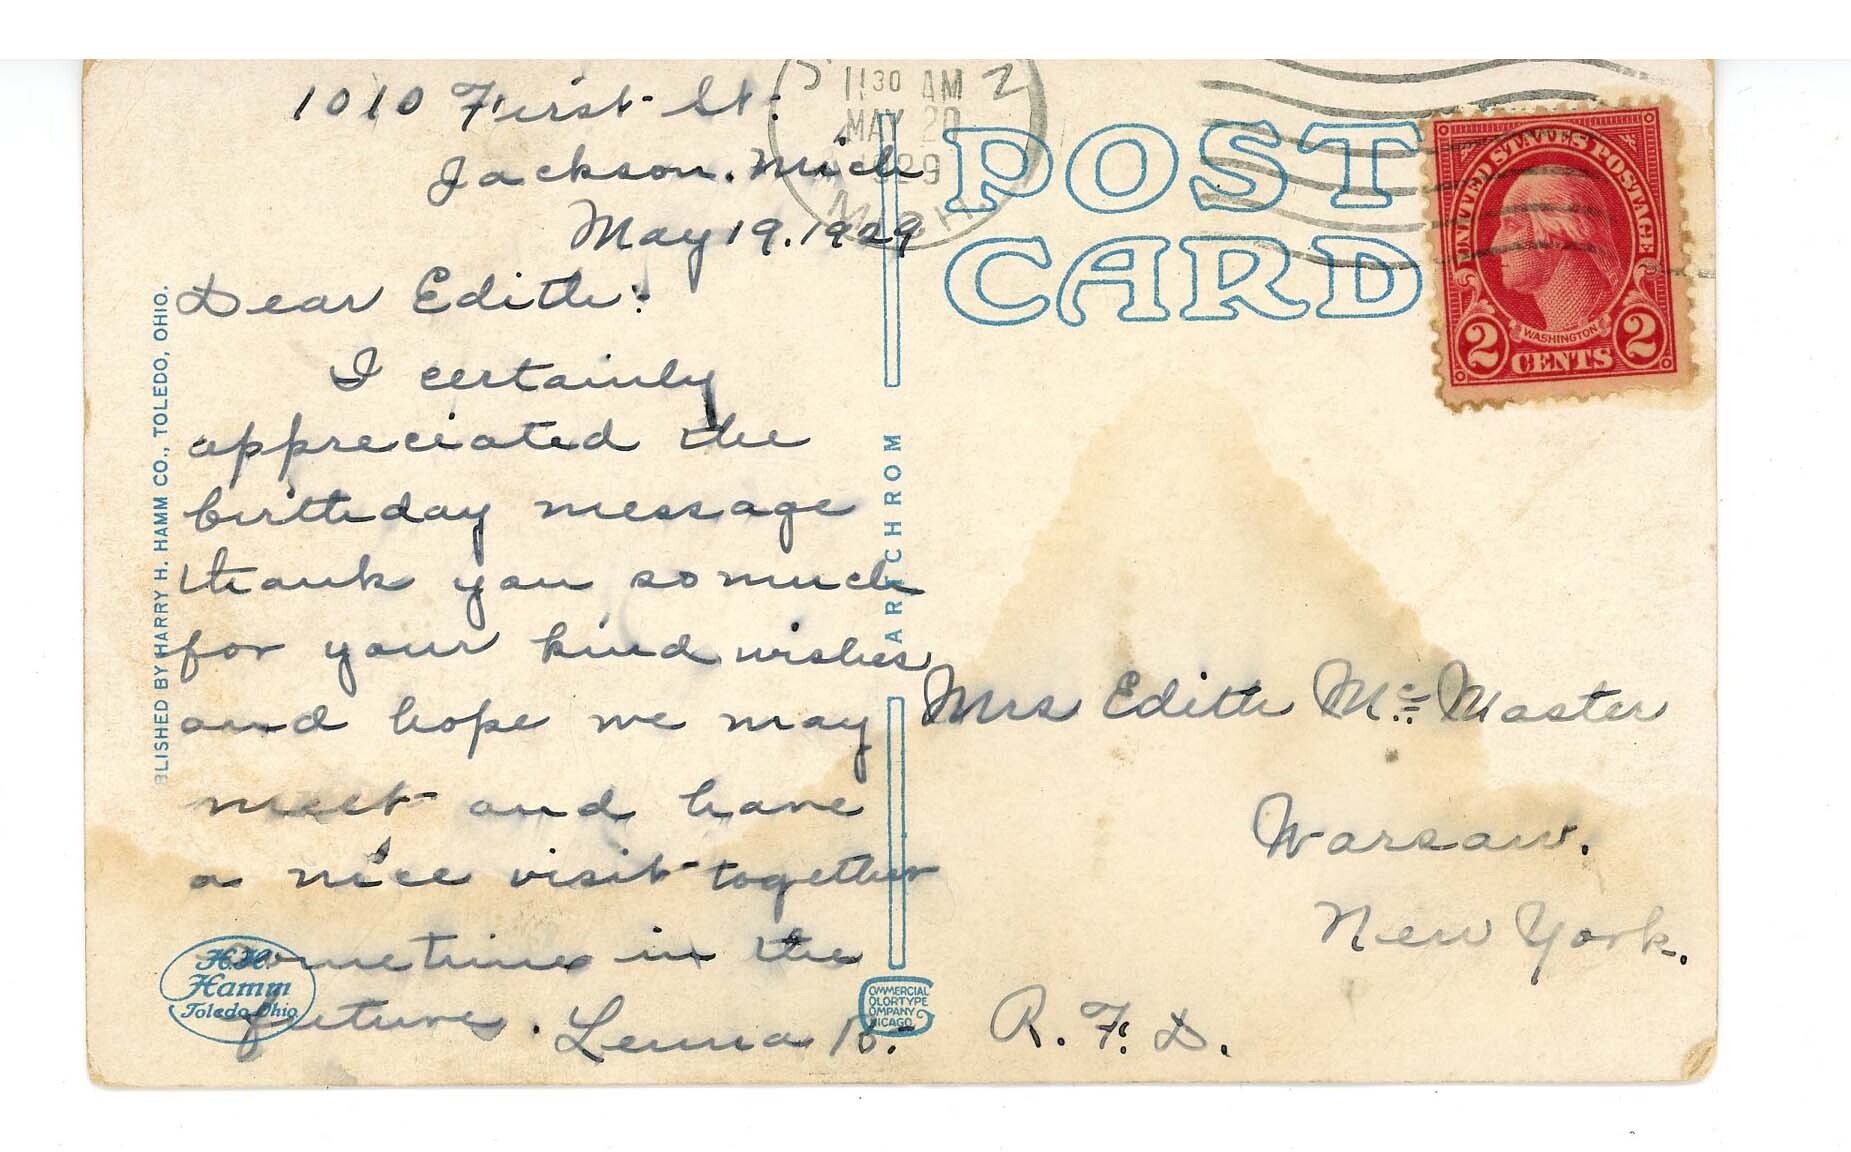 1010 First St.
Jackson. Mich
May 19. 1929
Dear Edith:
I certainly
appreciated the
birthday message
thank you so much
for your kind wishes
and hope we may
meet and have
a nice visit together
sometime in the
future. Lenna B.
11 30 AM
MAY 20
MICH.
POST
CARD
UNITED STATES POSTAGE
WASHINGTON
2 CENTS 2
Mrs Edith Mc Master
Warsaw.
New York.
R. F. D.
BLISHED BY HARRY H. HAMM CO., TOLEDO, OHIO.
ARTCHROM
H.H.
Hamm
Toledo Ohio
COMMERCIAL
COLORTYPE
COMPANY
CHICAGO